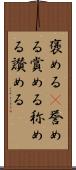 褒める×誉め
る賞める称め
る讃める